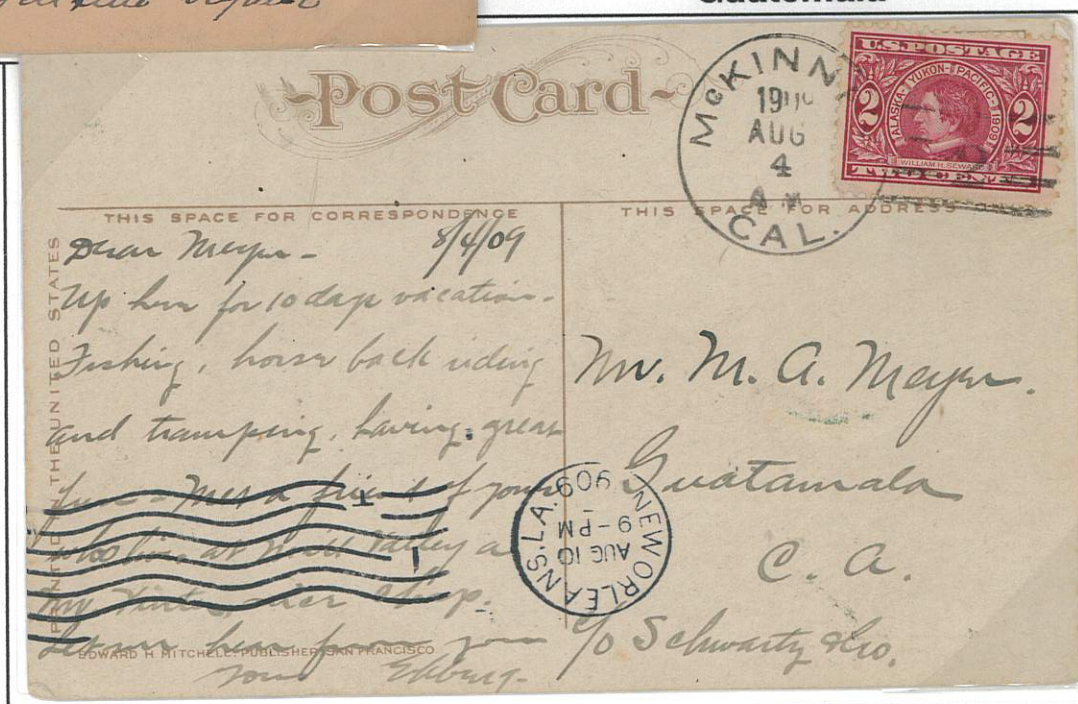 Guatemala
Post Card
McKINN
19
AUG
4
A.M.
CAL.
U.S. POSTAGE
ALASKA-YUKON-PACIFIC-1909
2 2
WILLIAM H. SEWARD
TWO CENTS
THIS SPACE FOR CORRESPONDENCE
THIS SPACE FOR ADDRESS
PRINTED IN THE UNITED STATES
Dear Meyer - 8/4/09
Up here for 10 days vacation.
Fishing, horse back riding
and tramping, having great
fun - Met a friend of yours
who lives at Mill Valley a
Mr.
Let me hear from you
Yours
Mr. M. A. Meyer.
Guatamala
C. A.
c/o Schwartz & Co.
NEW ORLEANS, LA.
AUG 10
9-PM
1909
EDWARD H. MITCHELL, PUBLISHER, SAN FRANCISCO